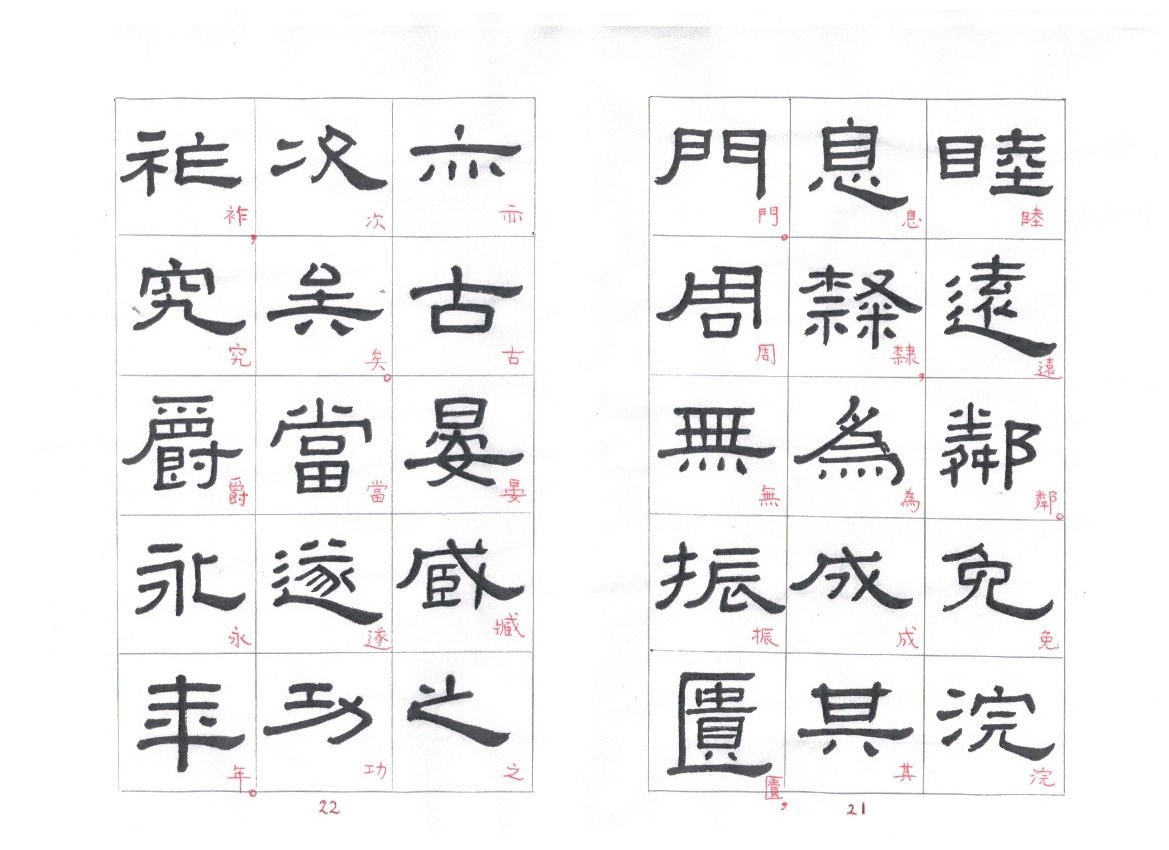 睦遠鄰免浣
睦遠鄰。免浣
息隸為成其
息隸,為成其
門周無振匱
門。周無振匱,
21
亦古晏臧之
亦古晏臧之
次矣當遂功
次矣。當遂功
祚究爵永年
祚,究爵永年。
22